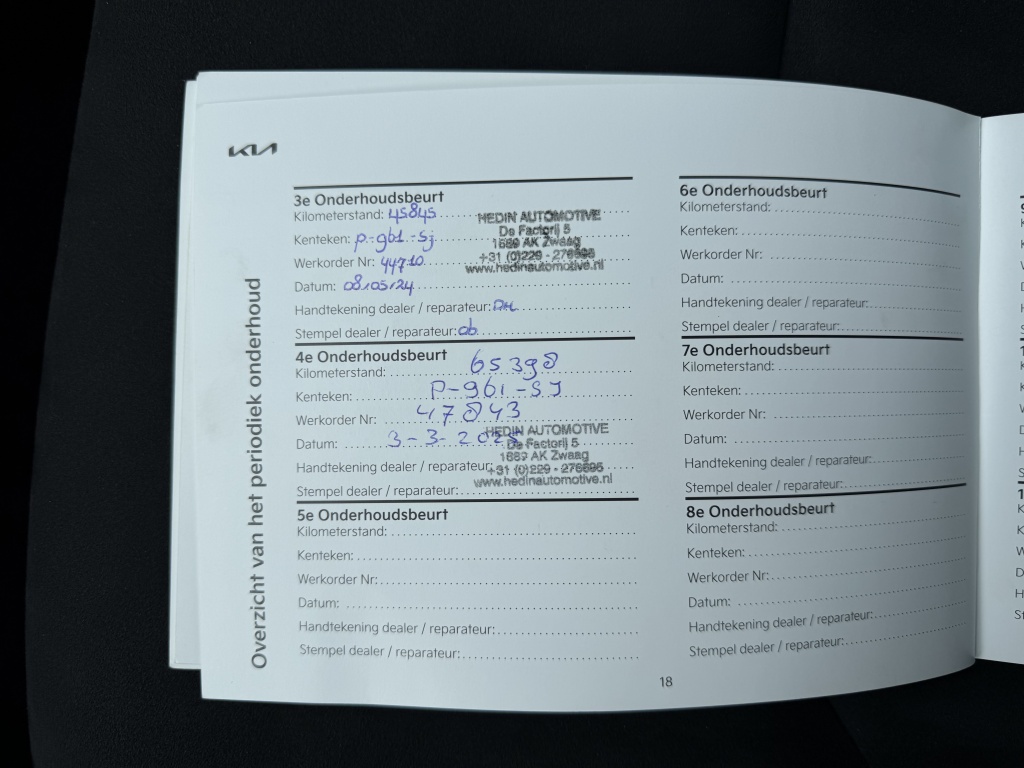 KIA
Overzicht van het periodiek onderhoud
3e Onderhoudsbeurt
Kilometerstand: 45845
Kenteken: P-961-SJ
Werkorder Nr: 44710
Datum: 08/05/24
Handtekening dealer / reparateur:
Stempel dealer / reparateur:
HEDIN AUTOMOTIVE
De Factorij 5
1689 AK Zwaag
+31 (0)229 - 276695
www.hedinautomotive.nl
4e Onderhoudsbeurt
Kilometerstand: 65398
Kenteken: P-961-SJ
Werkorder Nr: 47843
Datum: 3-3-2025
Handtekening dealer / reparateur:
Stempel dealer / reparateur:
HEDIN AUTOMOTIVE
De Factorij 5
1689 AK Zwaag
+31 (0)229 - 276695
www.hedinautomotive.nl
5e Onderhoudsbeurt
Kilometerstand:
Kenteken:
Werkorder Nr:
Datum:
Handtekening dealer / reparateur:
Stempel dealer / reparateur:
6e Onderhoudsbeurt
Kilometerstand:
Kenteken:
Werkorder Nr:
Datum:
Handtekening dealer / reparateur:
Stempel dealer / reparateur:
7e Onderhoudsbeurt
Kilometerstand:
Kenteken:
Werkorder Nr:
Datum:
Handtekening dealer / reparateur:
Stempel dealer / reparateur:
8e Onderhoudsbeurt
Kilometerstand:
Kenteken:
Werkorder Nr:
Datum:
Handtekening dealer / reparateur:
Stempel dealer / reparateur:
18